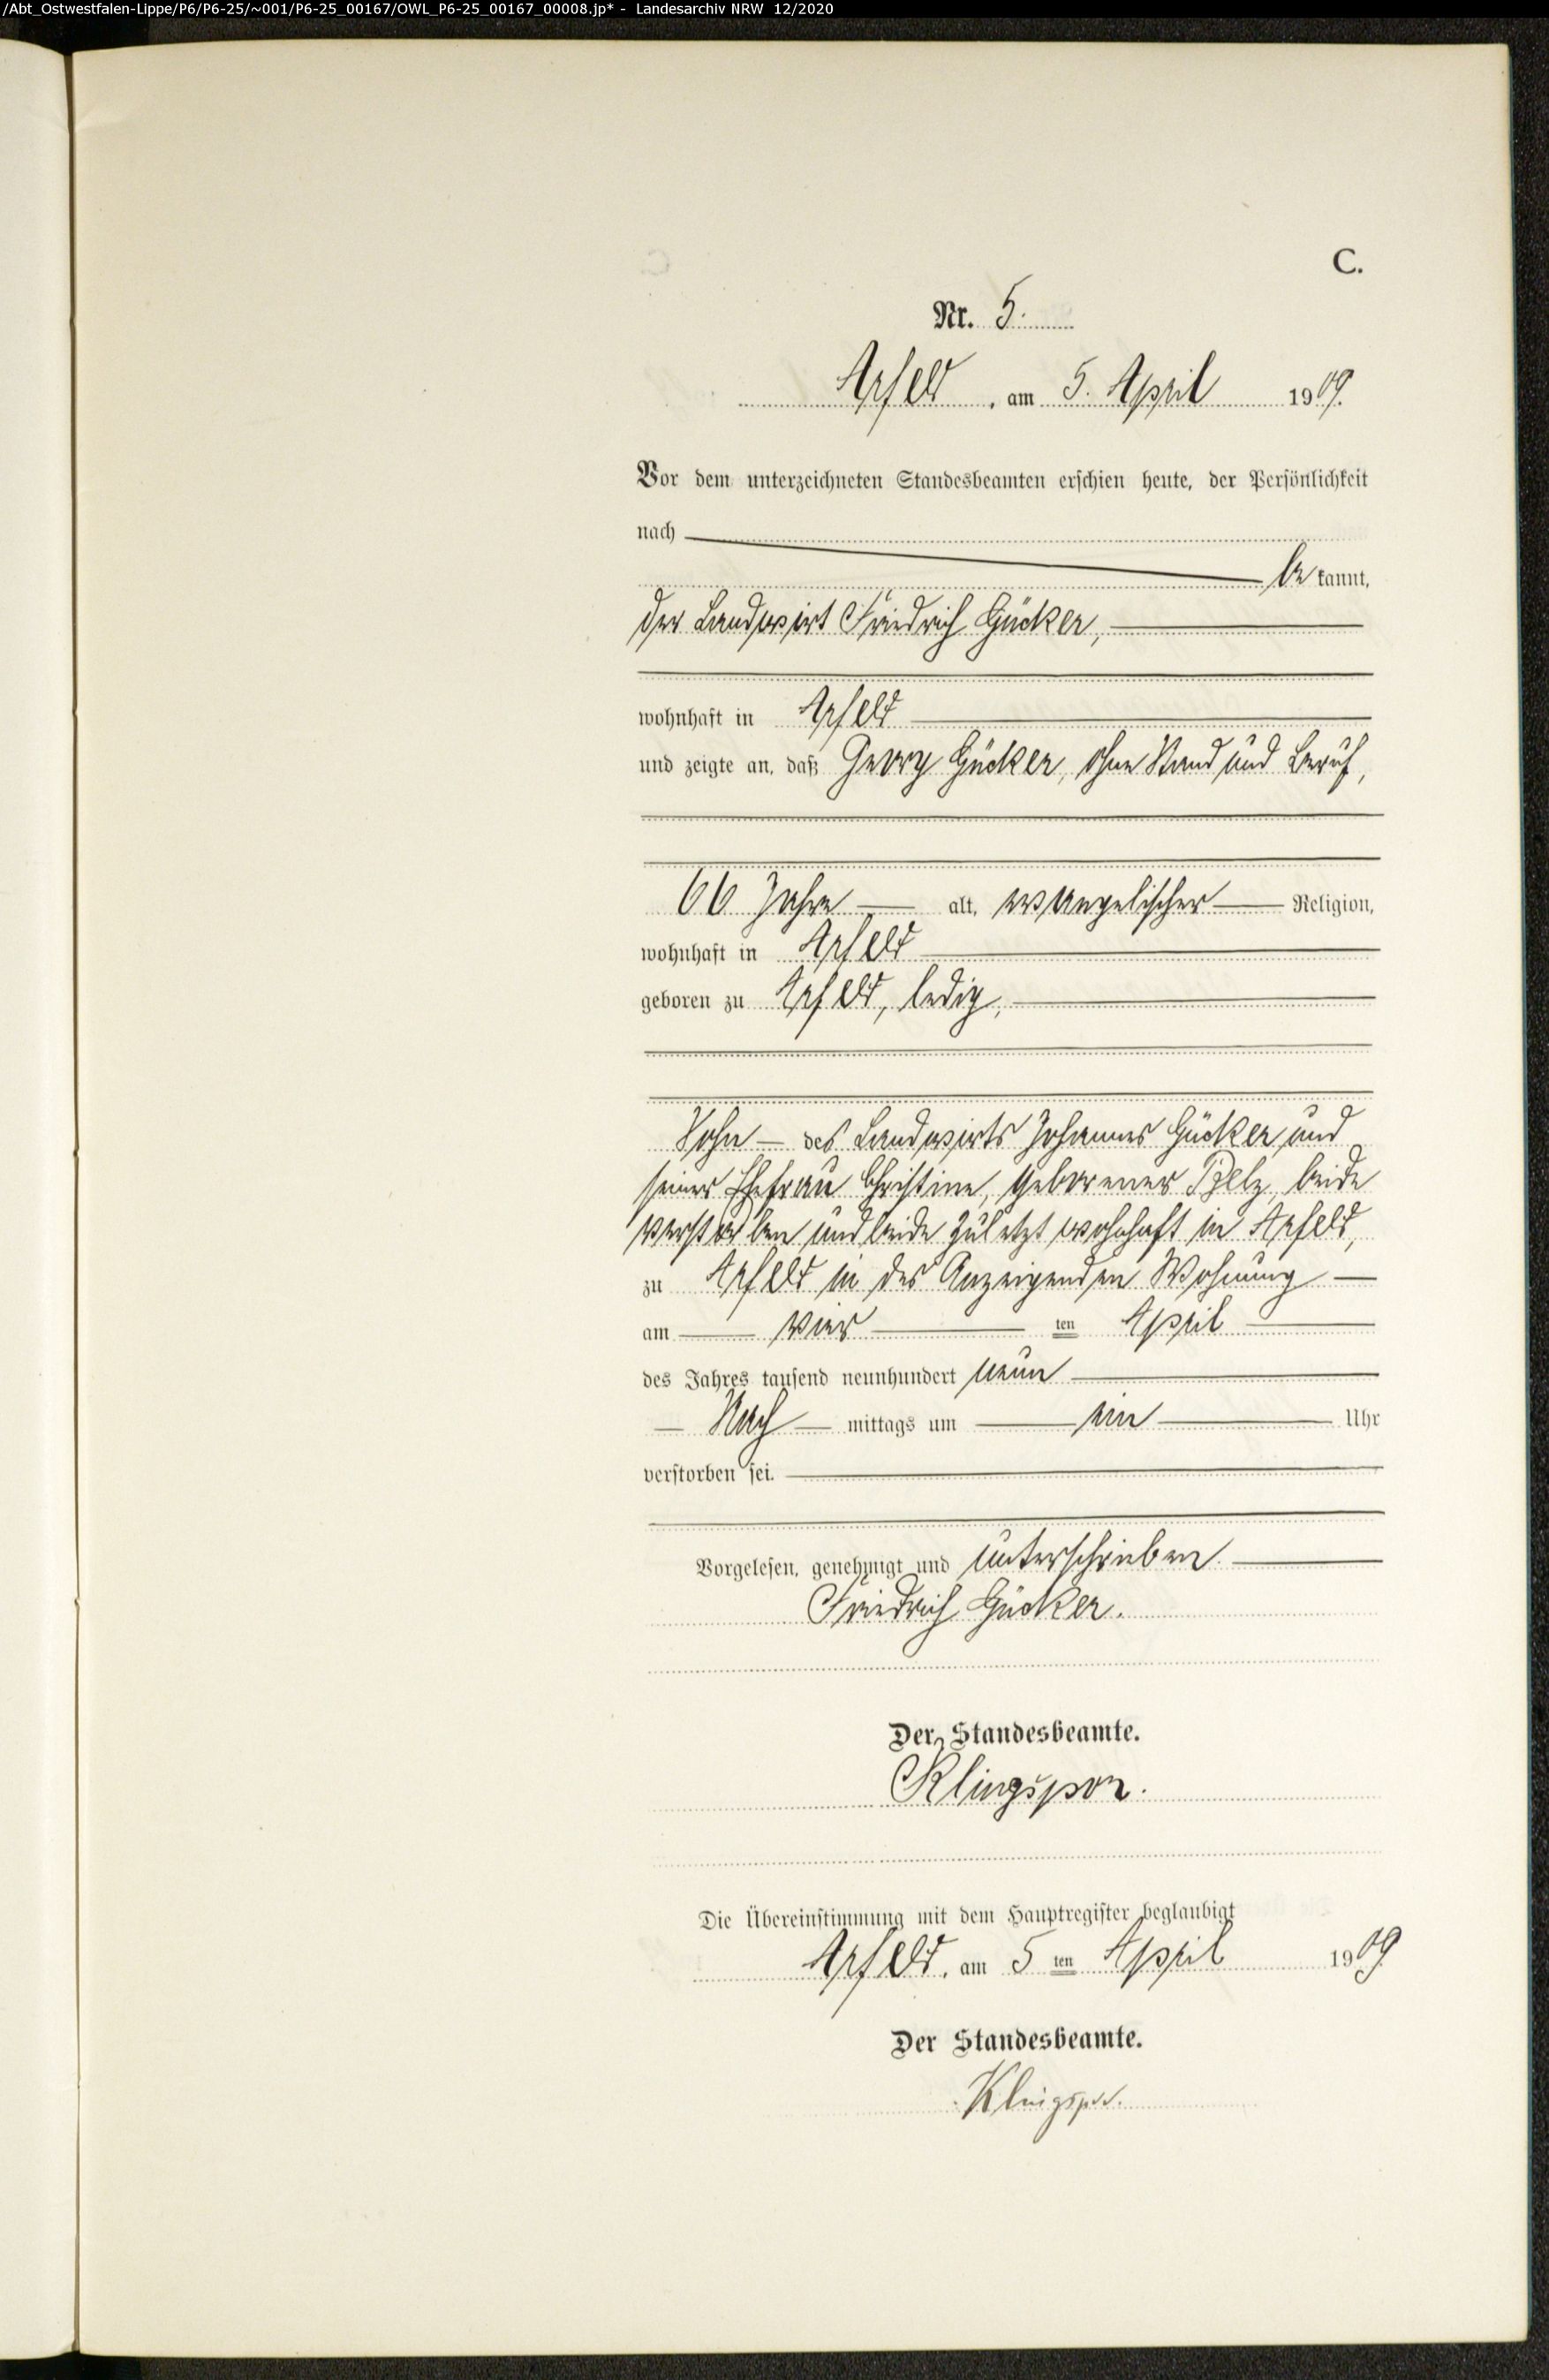 /Abt_Ostwestfalen-Lippe/P6/P6-25/~001/P6-25_00167/OWL_P6-25_00167_00008.jp* - Landesarchiv NRW 12/2020
C.
Nr. 5.
Arfeld, am 5. April 1909.
Vor dem unterzeichneten Standesbeamten erschien heute, der Persönlichkeit
nach
be kannt,
der Landwirt Friedrich Gücker,
wohnhaft in Arfeld
und zeigte an, daß Georg Gücker, ohne Stand und Beruf,
66 Jahre alt, evangelischer Religion,
wohnhaft in Arfeld
geboren zu Arfeld, ledig,
Sohn des Landwirts Johannes Gücker und
seiner Ehefrau Christine, geborener Pelz, beide
verstorben und beide zuletzt wohnhaft in Arfeld,
zu Arfeld in des Anzeigenden Wohnung
am vier ten April
des Jahres tausend neunhundert neun
Nach mittags um ein Uhr
verstorben sei.
Vorgelesen, genehmigt und unterschrieben.
Friedrich Gücker.
Der Standesbeamte.
Klingspor.
Die Übereinstimmung mit dem Hauptregister beglaubigt
Arfeld, am 5 ten April 1909
Der Standesbeamte.
Klingspor.